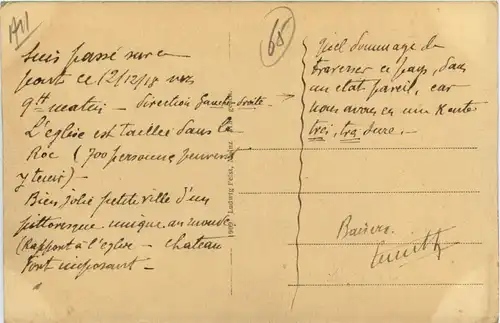 A11
68
Suis passé sur ce
pont ce 12/12/18 vers
9h matin - direction Gauche-droite. →
L'église est taillée dans le
Roc (700 personnes peuvent
y tenir) -
Bien jolie petite ville d'un
pittoresque unique au monde
(Rapport à l'église - chateau
fort imposant -
1909 Ludwig Feist, Mainz
Quel dommage de
traverser ce pays, dans
un état pareil, car
nous avons eu une route
très, très dure. -
Baisers.